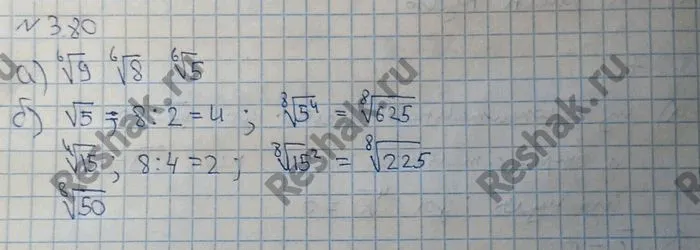 № 380
а) ⁶√9 ⁶√8 ⁶√5
б) √5 ; 8:2=4 ; ⁸√5⁴ = ⁸√625
⁴√15 , 8:4=2 ; ⁸√15² = ⁸√225
⁸√50
Reshak.ru
Reshak.ru
Reshak.ru
Reshak.ru
Reshak.ru